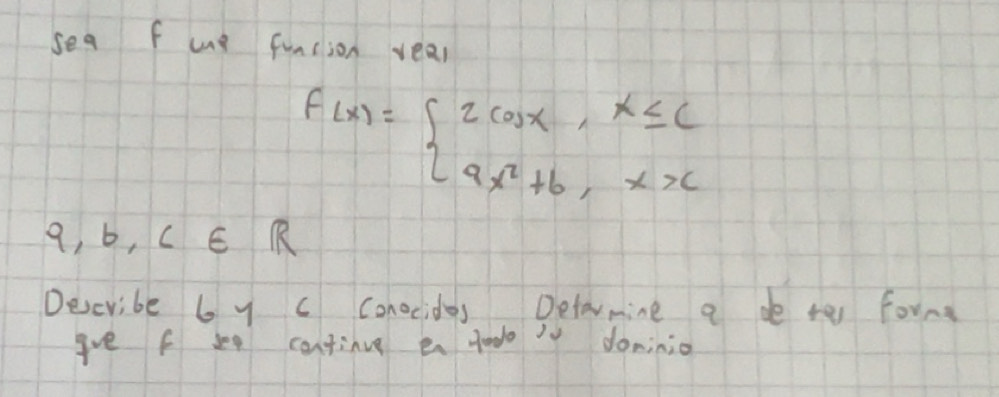 sea f una funcion real
f(x) = { 2 cos x , x ≤ c
ax² + b , x > c
a, b, c ∈ ℝ
Describe b y c conocidos Determine a de tal forma
que f sea continua en todo su dominio